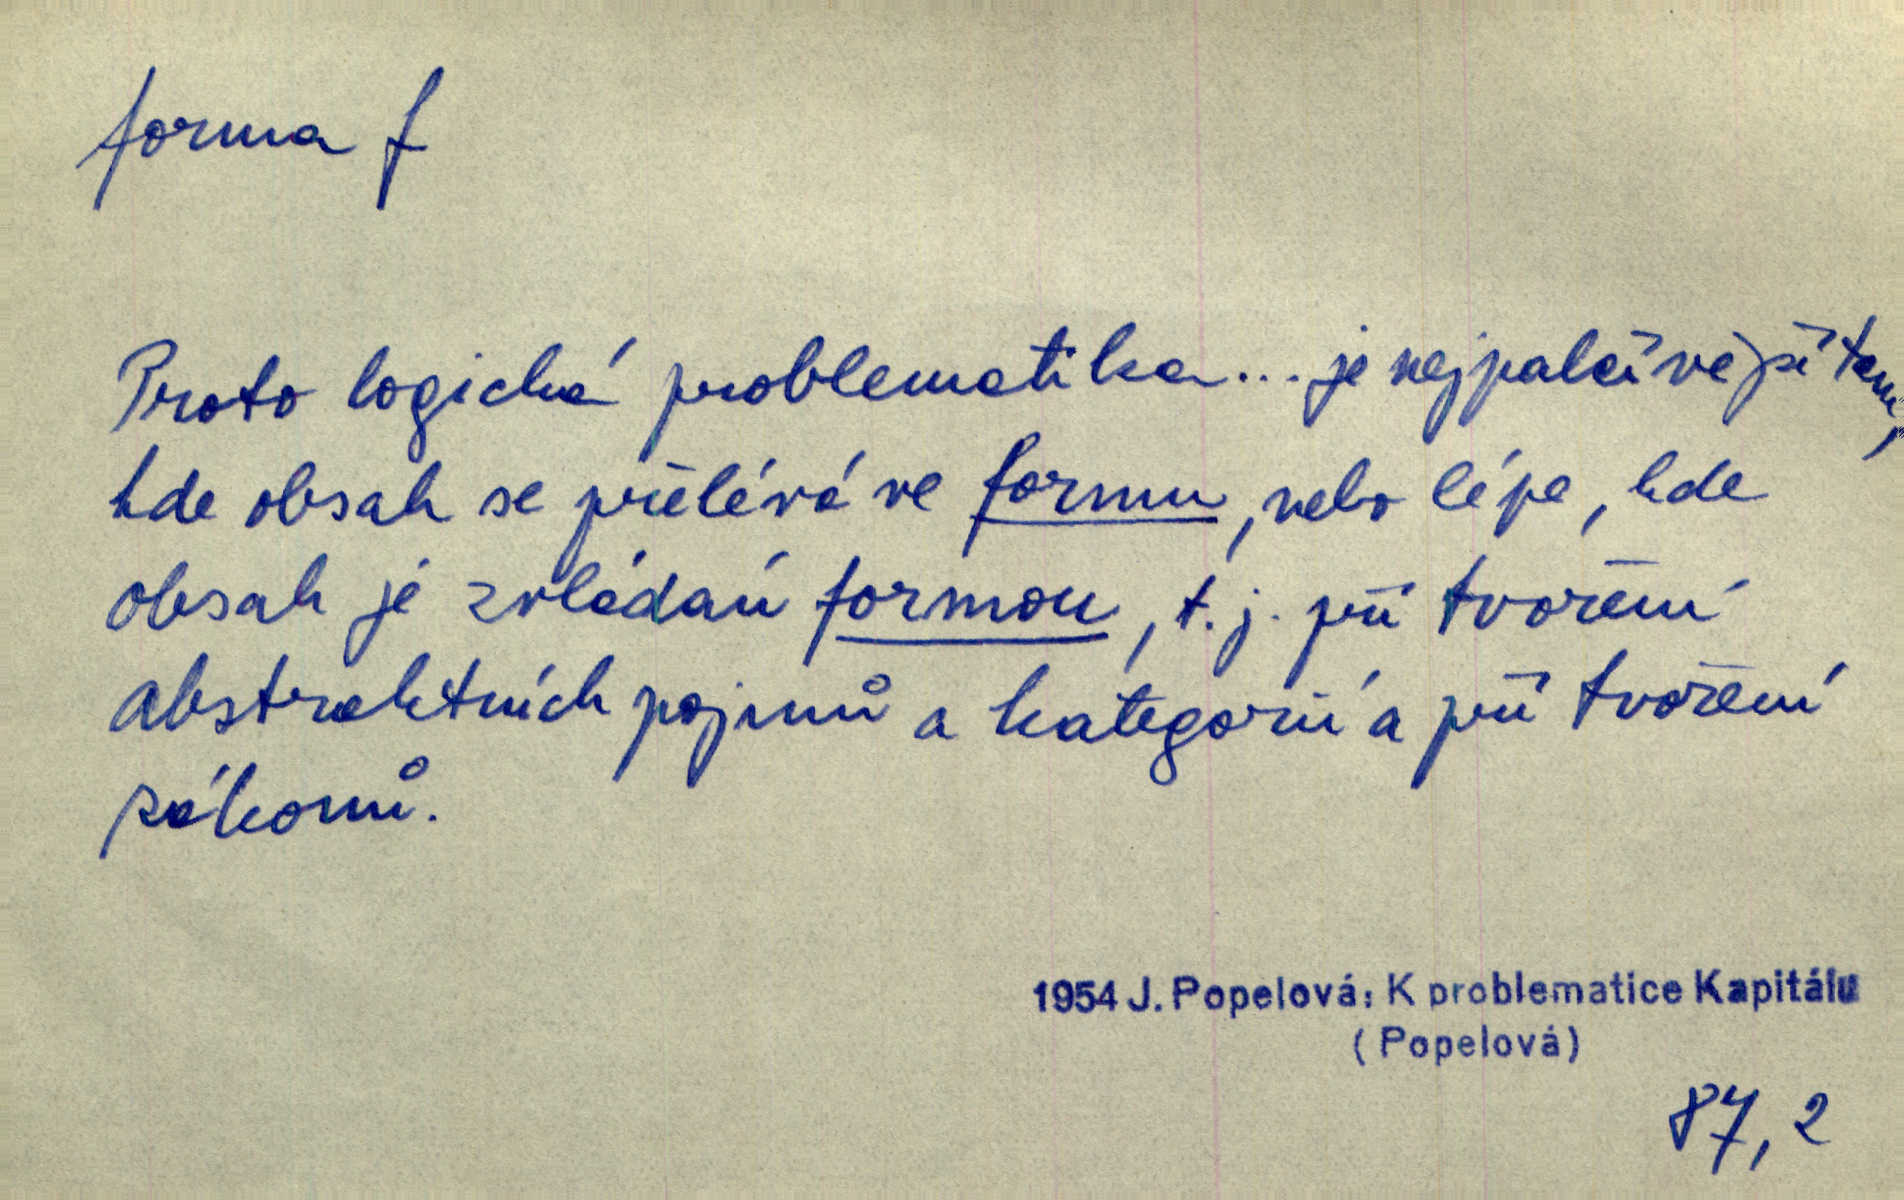 forma f
Proto logická problematika... je nejpalčivější tam,
kde obsah se přelévá ve formu, nebo lépe, kde
obsah je zvládán formou, t. j. při tvoření
abstraktních pojmů a kategorií a při tvoření
zákonů.
1954 J. Popelová: K problematice Kapitálu
(Popelová)
87, 2